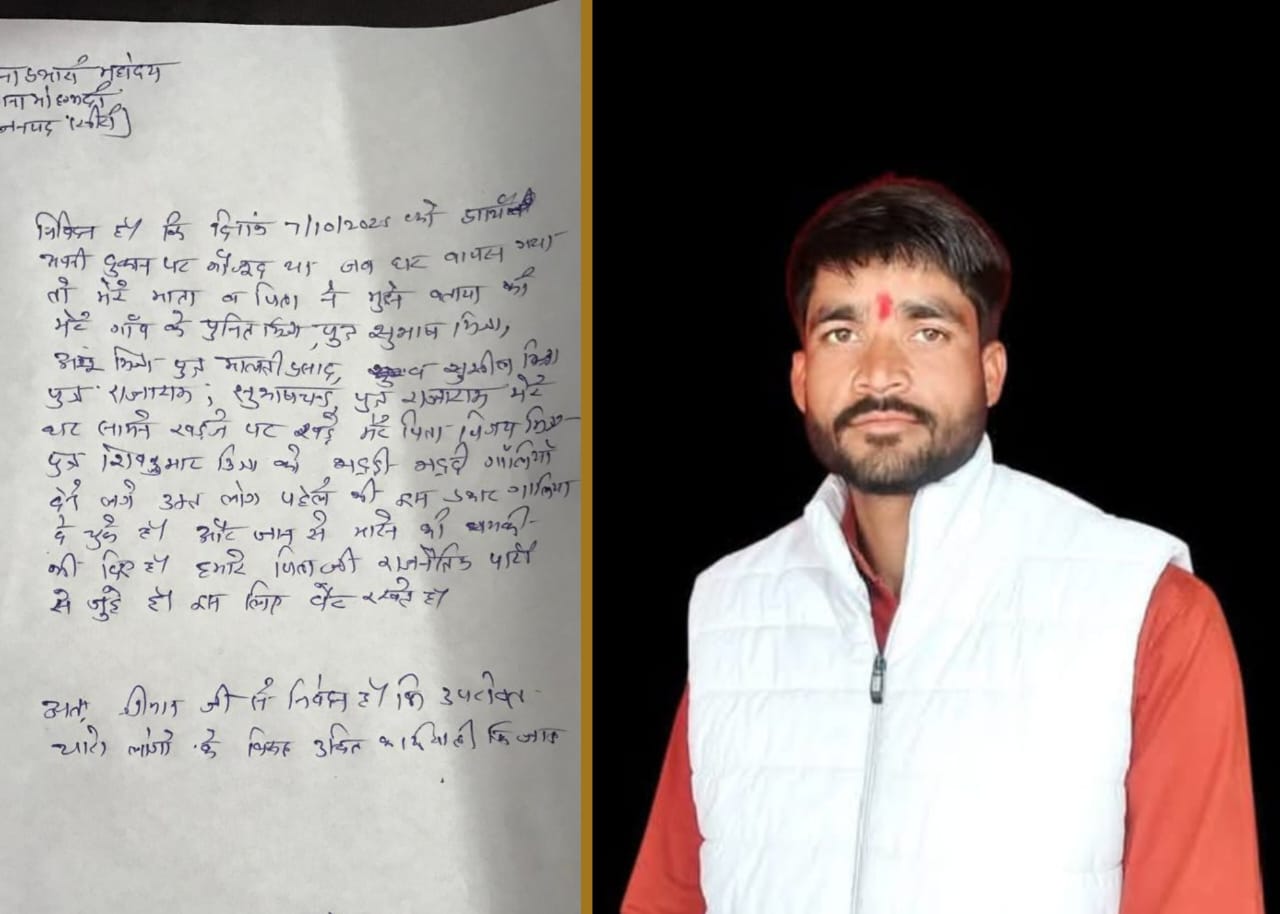 महोदय
जनपद (खीरी)
है। कि दिनांक 7/10/2025 को
अपनी दुकान पर मौजूद था जब घर वापस गया
तो मेरे माता व पिता ने मुझे बताया की
मेरे गाँव के पुनित मिश्रा पुत्र सुभाष मिश्रा,
पुत्र मालती प्रसाद, व सुशील मिश्रा
पुत्र राजाराम, सुभाषचन्द्र पुत्र राजाराम मेरे
घर सामने खड़ंजे पर खड़े मेरे पिता विजय मिश्रा
पुत्र शिवकुमार मिश्रा को भद्दी भद्दी गॉलियाँ
देने लगे उक्त लोग पहले भी इस प्रकार गालिया
दे चुके है। और जान से मारने की धमकी
भी दिए है। हमारे पिता जी राजनैतिक पार्टी
से जुड़े है। इस लिए बैर रखते है।
अतः श्रीमान जी से निवेदन है। कि उपरोक्त
चारो लोगो के विरुद्ध उचित कार्यवाही कि जाए